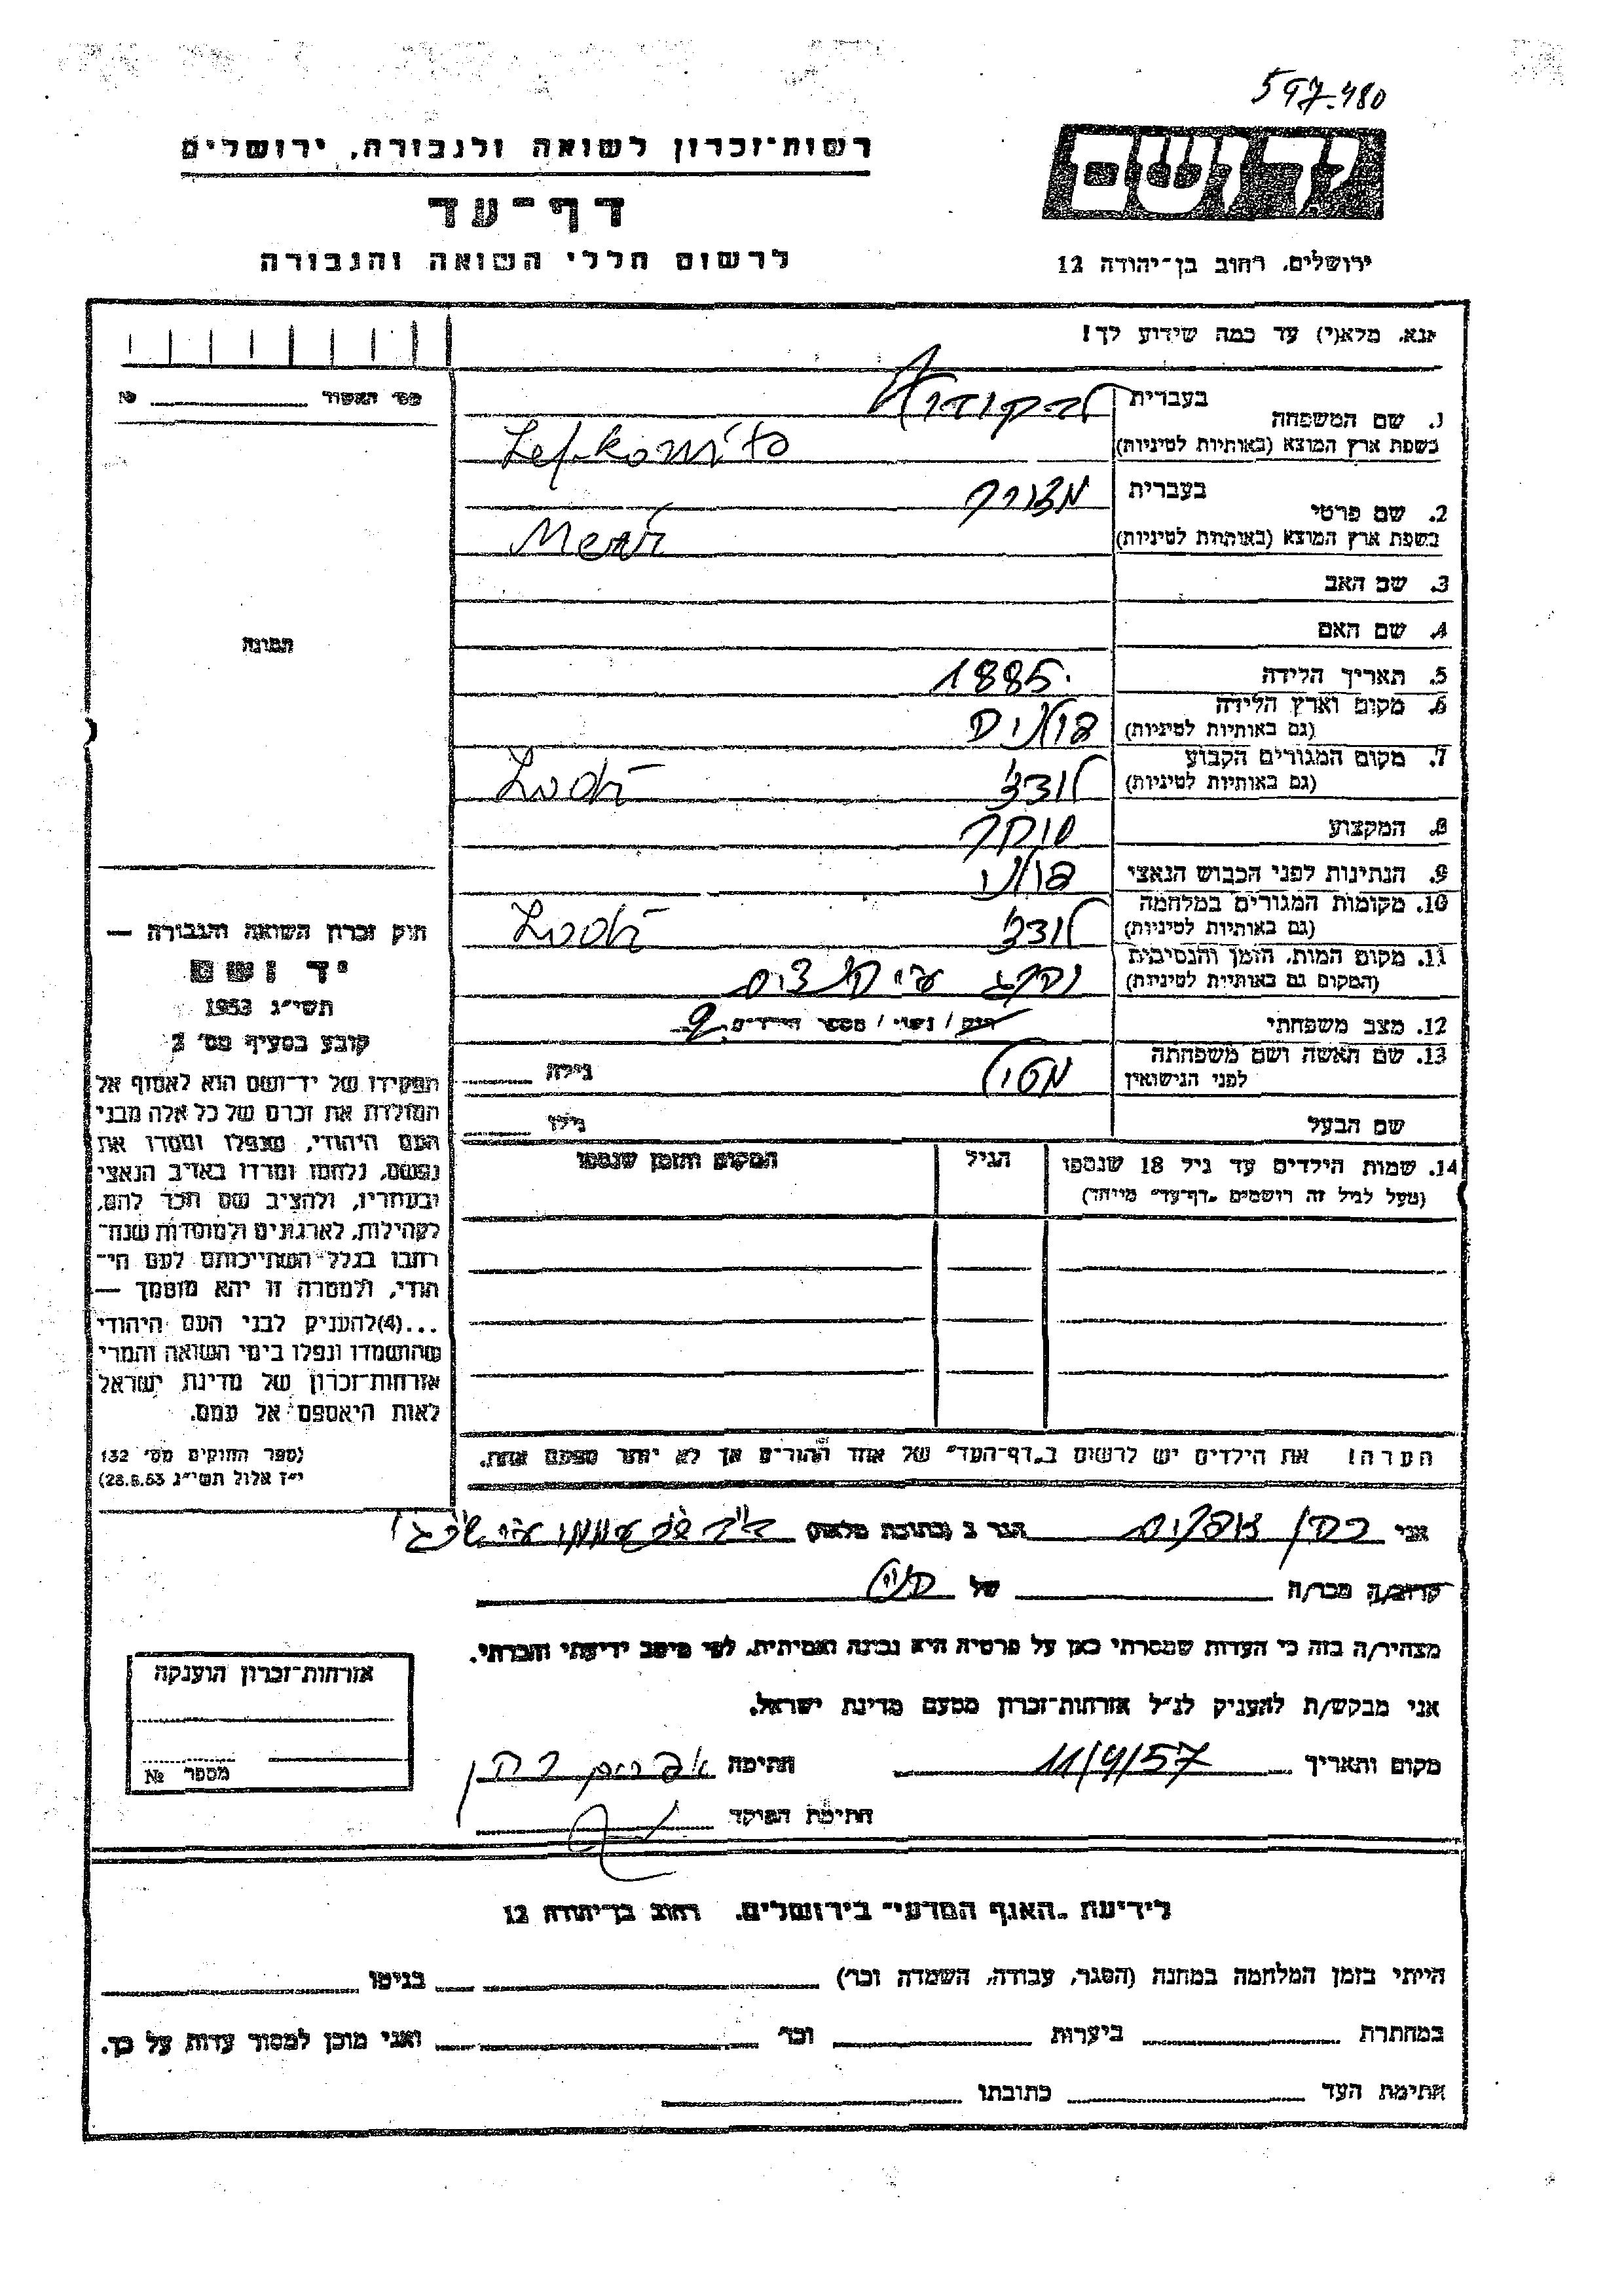 597-480
רשות-זכרון לשואה ולגבורה, ירושלים
דף-עד
לרשום חללי השואה והגבורה
ידושם
ירושלים, רחוב בן-יהודה 12
אנא, מלא(י) עד כמה שידוע לך!
מס׳ האשור № 
1. שם המשפחה
בעברית
בשפת ארץ המוצא (באותיות לטיניות)
Lefkowitz
2. שם פרטי
בעברית
בשפת ארץ המוצא (באותיות לטיניות)
3. שם האב
4. שם האם
תמונה
5. תאריך הלידה 1885
6. מקום וארץ הלידה פולניה
(גם באותיות לטיניות)
7. מקום המגורים הקבוע לודז׳
(גם באותיות לטיניות) Lodz
8. המקצוע סוחר
9. הנתינות לפני הכבוש הנאצי פולני
10. מקומות המגורים במלחמה לודז׳
(גם באותיות לטיניות) Lodz
11. מקום המות, הזמן והנסיבות
(המקום גם באותיות לטיניות)
12. מצב משפחתי רוק / נשוי / מספר הילדים 9
13. שם האשה ושם משפחתה
לפני הנישואין
גילה
שם הבעל גילו
14. שמות הילדים עד גיל 18 שנספו הגיל המקום והזמן שנספו
(מעל לגיל זה רושמים „דף-עד״ מיוחד)
חוק זכרון השואה והגבורה —
יד ושם
תשי״ג 1953
קובע בסעיף מס׳ 2
תפקידו של יד-ושם הוא לאסוף אל
המולדת את זכרם של כל אלה מבני
העם היהודי, שנפלו ומסרו את
נפשם, נלחמו ומרדו באויב הנאצי
ובעוזריו, ולהציב שם וזכר להם,
לקהילות, לארגונים ולמוסדות שנח-
רבו בגלל השתייכותם לעם הי-
הודי, ולמטרה זו יהא מוסמך —
...(4)להעניק לבני העם היהודי
שהושמדו ונפלו בימי השואה והמרי
אזרחות-זכרון של מדינת ישראל
לאות היאספם אל עמם.
(ספר החוקים מס׳ 132
י״ז אלול תשי״ג 28.8.53)
הערה! את הילדים יש לרשום ב„דף-העד״ של אחד ההורים אך לא יותר מפעם אחת.
אני הגר ב (כתובת מלאה)
קרוב/ה מכר/ה של
מצהיר/ה בזה כי העדות שמסרתי כאן על פרטיה היא נכונה ואמיתית, לפי מיטב ידיעתי והכרתי.
אני מבקש/ת להעניק לנ״ל אזרחות-זכרון מטעם מדינת ישראל.
מקום ותאריך 11/4/57 חתימה
חתימת הפוקד
אזרחות-זכרון הוענקה
מספר №
לידיעת „האגף המדעי״ בירושלים, רחוב בן-יהודה 12
הייתי בזמן המלחמה במחנה (הסגר, עבודה, השמדה וכו׳) בגיטו
במחתרת ביערות וכו׳ ואני מוכן למסור עדות על כך.
חתימת העד כתובתו